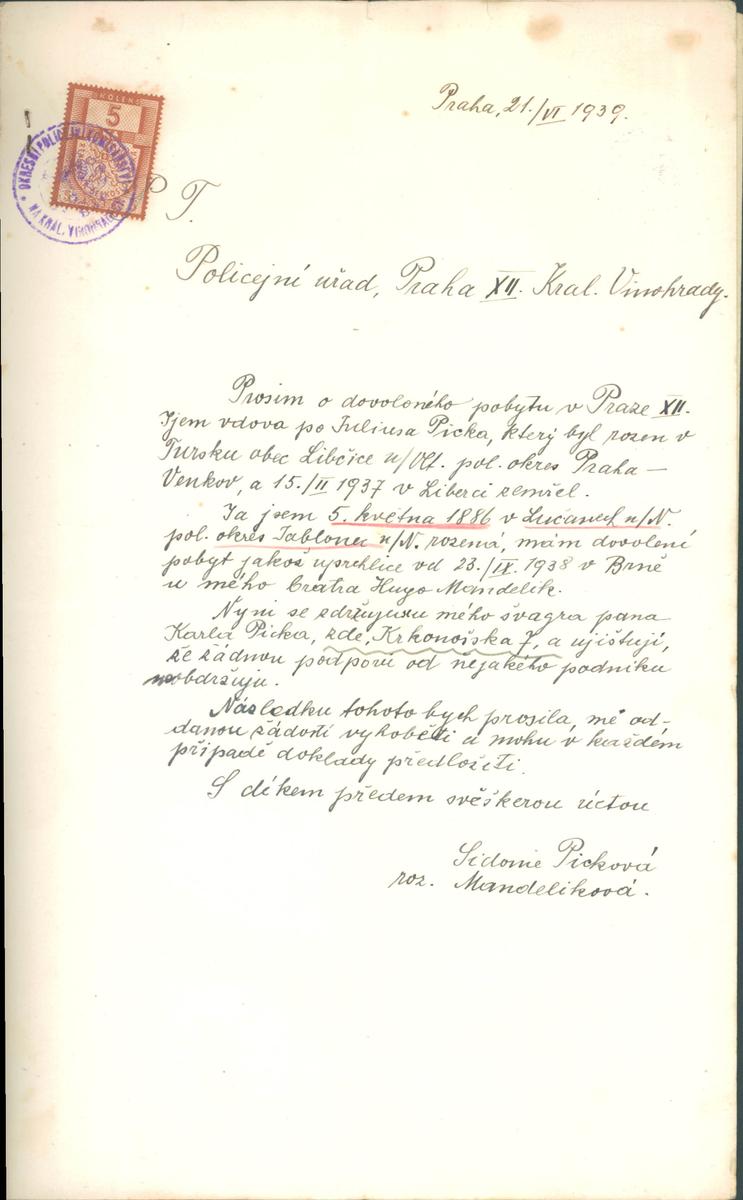 Praha, 21./VI 1939.
5
P T.
Policejní uřad, Praha XII. Kral. Vinohrady.
Prosim o dovoloného pobytu v Praze XII.
Ijem vdova po Iuliusa Picka, který byl rozen v
Tursku obec Libčice n/Vlt. pol. okres Praha —
Venkov, a 15./II 1937 v Liberci zemřel.
Ia jsem 5. května 1886 v Lučanech n/N.
pol. okres Iablonec n/N. rozená, mám dovolení
pobyt jakož uprchlice vd 23./IX. 1938 v Brně
u mého bratra Hugo Mandelik.
Nyni se zdržuju u mého švagra pana
Karla Picka, zde, Krkonošska 7, a ujištuji,
že žádnou podporu od nějakého podniku
neobdržuju.
Následku tohoto bych prosila, mé od-
danou žádosti vyhověti a mohu v každém
případě doklady předložiti.
S díkem předem svěškerou úctou
Sidonie Picková
roz. Mandeliková.